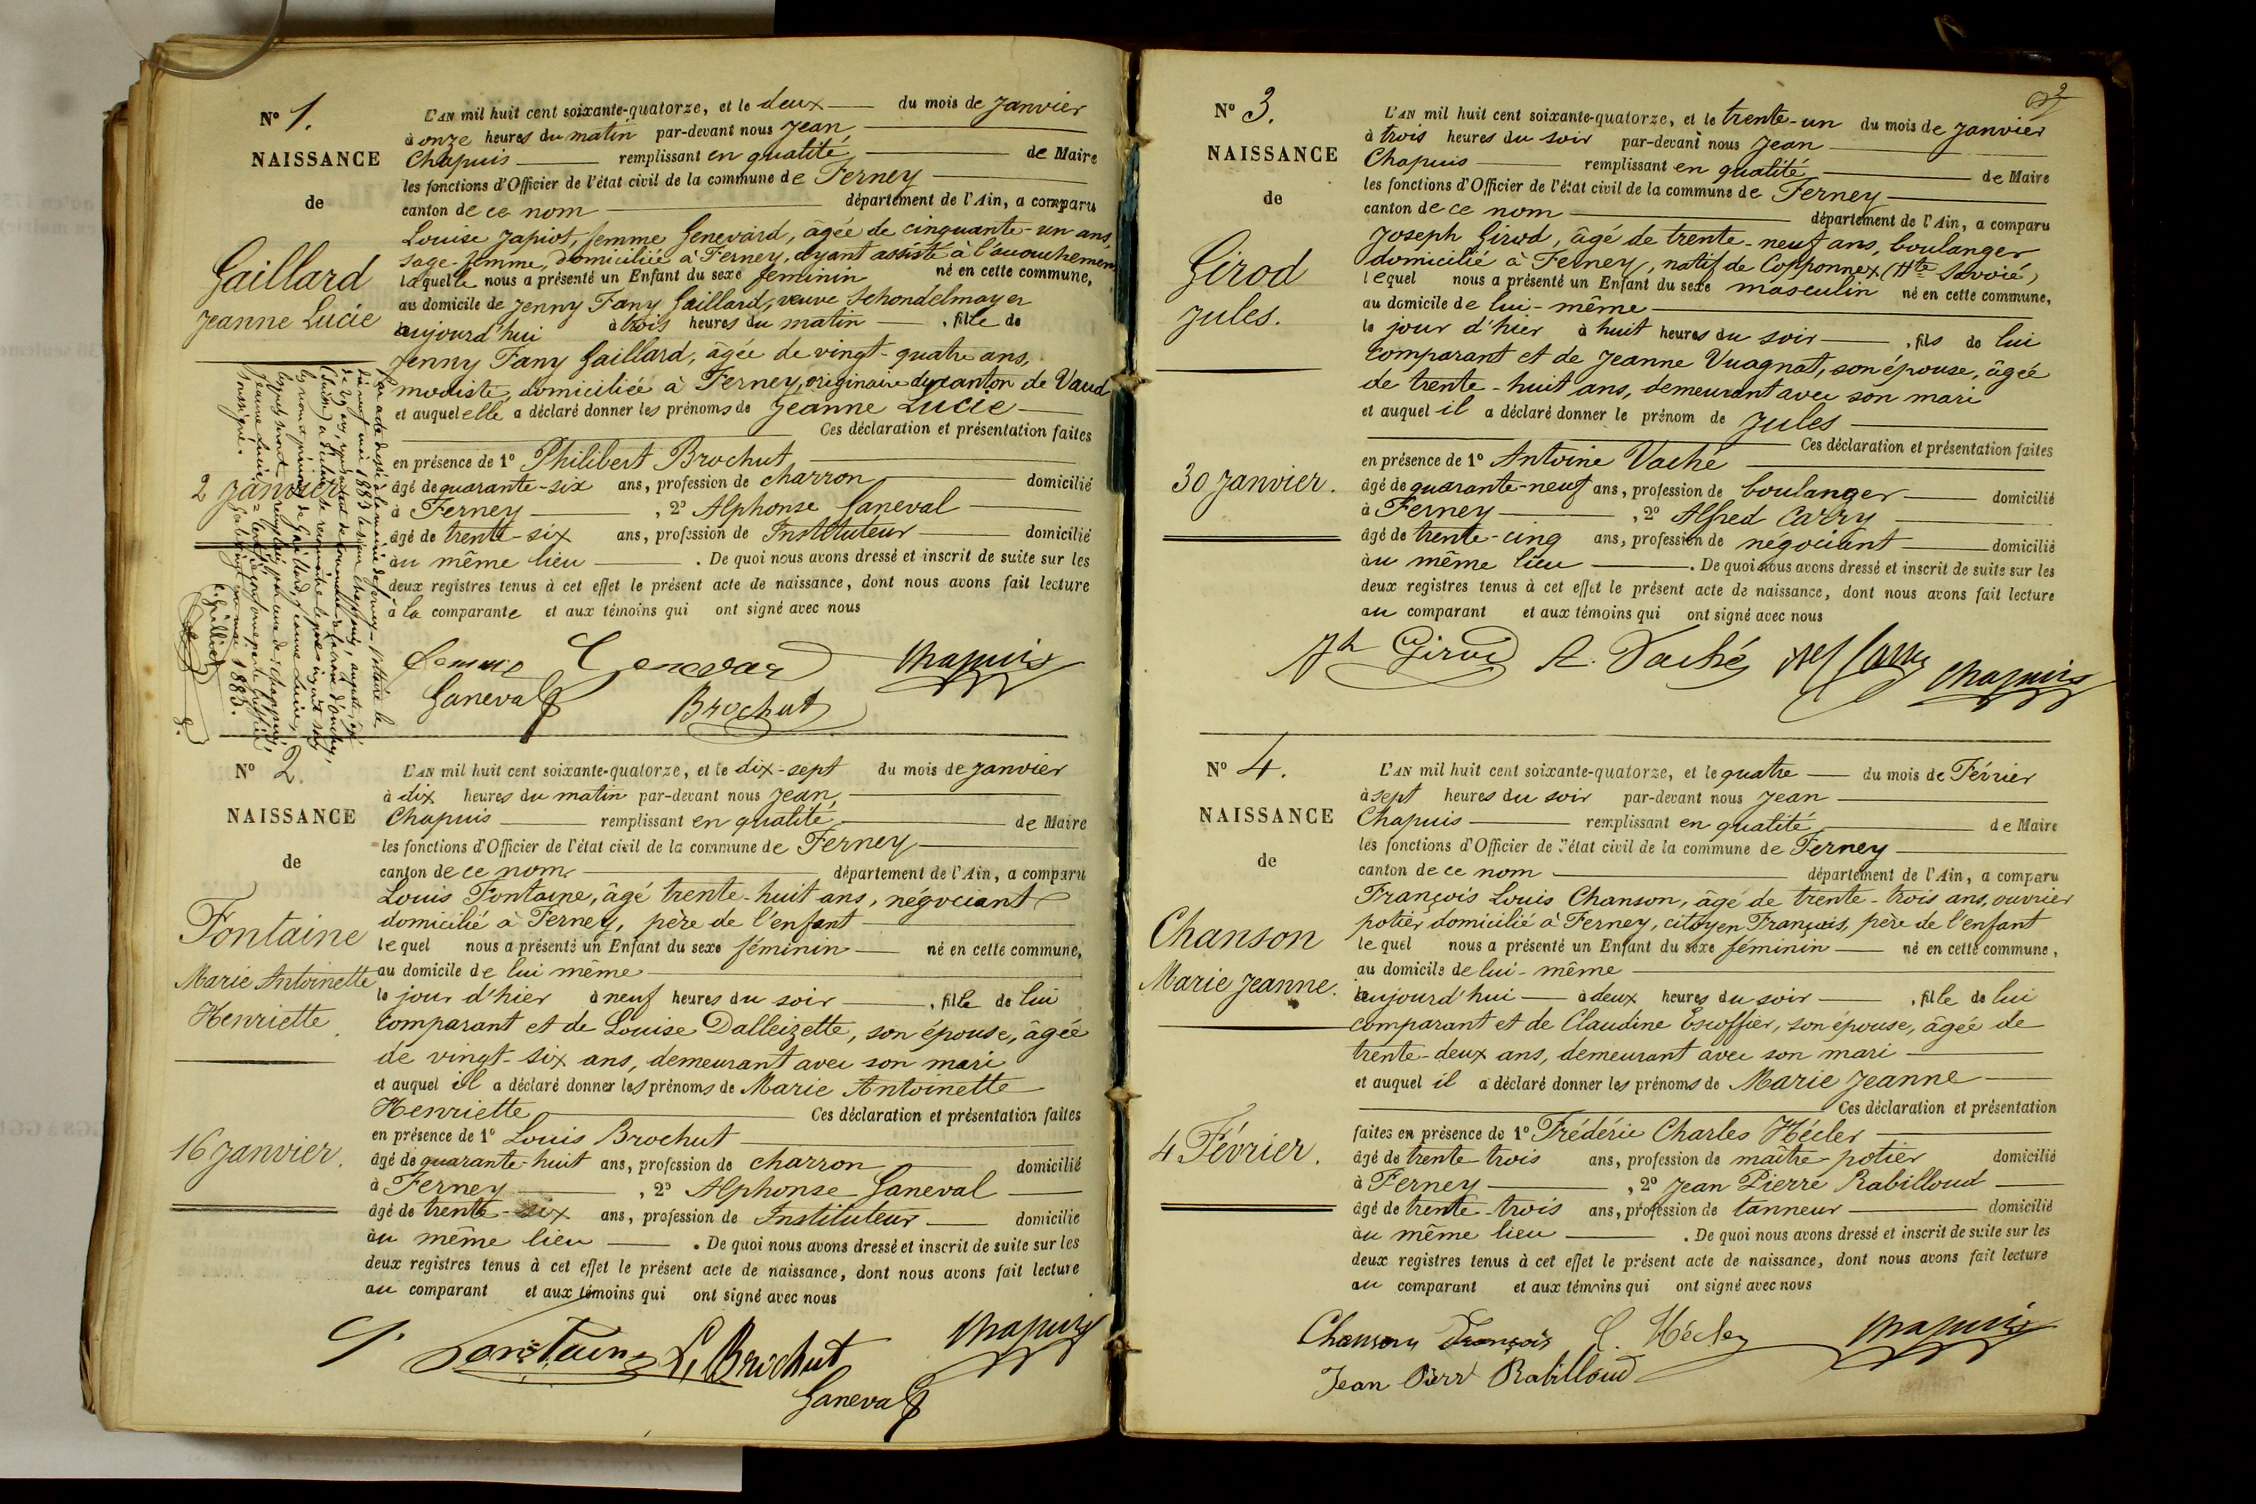 N° 1.
NAISSANCE
de
Gaillard
Jeanne Lucie
2 Janvier
L'AN mil huit cent soixante-quatorze, et le deux du mois de Janvier
à onze heures du matin par-devant nous Jean
Chapuis remplissant en qualité de Maire
les fonctions d'Officier de l'état civil de la commune de Ferney
canton de ce nom département de l'Ain, a comparu
Louise Japiot, femme Genevard, âgée de cinquante-un ans,
sage-femme, domiciliée à Ferney, ayant assisté à l'accouchement
laquelle nous a présenté un Enfant du sexe féminin né en cette commune,
au domicile de Jenny Fany Gaillard, veuve Schondelmayer
aujourd'hui à trois heures du matin , fille de
Jenny Fany Gaillard, âgée de vingt-quatre ans,
modiste, domiciliée à Ferney, originaire du canton de Vaud
et auquel elle a déclaré donner les prénoms de Jeanne Lucie
Ces déclaration et présentation faites
en présence de 1° Philibert Brochut
âgé de quarante-six ans, profession de charron domicilié
à Ferney , 2° Alphonse Ganeval
âgé de trente-six ans, profession de Instituteur domicilié
au même lieu . De quoi nous avons dressé et inscrit de suite sur les
deux registres tenus à cet effet le présent acte de naissance, dont nous avons fait lecture
à la comparante et aux témoins qui ont signé avec nous
femme Genevard Chapuis
Ganeval Brochut
N° 2.
NAISSANCE
de
Fontaine
Marie Antoinette
Henriette
16 Janvier.
L'AN mil huit cent soixante-quatorze, et le dix-sept du mois de Janvier
à dix heures du matin par-devant nous Jean
Chapuis remplissant en qualité de Maire
les fonctions d'Officier de l'état civil de la commune de Ferney
canton de ce nom département de l'Ain, a comparu
Louis Fontaine, âgé trente-huit ans, négociant
domicilié à Ferney, père de l'enfant
lequel nous a présenté un Enfant du sexe féminin né en cette commune,
au domicile de lui même
le jour d'hier à neuf heures du soir , fille de lui
comparant et de Louise Dalleizette, son épouse, âgée
de vingt-six ans, demeurant avec son mari
et auquel il a déclaré donner les prénoms de Marie Antoinette
Henriette Ces déclaration et présentation faites
en présence de 1° Louis Brochut
âgé de quarante-huit ans, profession de charron domicilié
à Ferney , 2° Alphonse Ganeval
âgé de trente-six ans, profession de Instituteur domicilié
au même lieu . De quoi nous avons dressé et inscrit de suite sur les
deux registres tenus à cet effet le présent acte de naissance, dont nous avons fait lecture
au comparant et aux témoins qui ont signé avec nous
Fontaine L. Brochut Chapuis
Ganeval
N° 3.
NAISSANCE
de
Girod
Jules.
30 Janvier.
L'AN mil huit cent soixante-quatorze, et le trente-un du mois de Janvier
à trois heures du soir par-devant nous Jean
Chapuis remplissant en qualité de Maire
les fonctions d'Officier de l'état civil de la commune de Ferney
canton de ce nom département de l'Ain, a comparu
Joseph Girod, âgé de trente-neuf ans, boulanger
domicilié à Ferney, natif de Copponnex (Hte Savoie)
lequel nous a présenté un Enfant du sexe masculin né en cette commune,
au domicile de lui-même
le jour d'hier à huit heures du soir , fils de lui
comparant et de Jeanne Vuagnat, son épouse, âgée
de trente-huit ans, demeurant avec son mari
et auquel il a déclaré donner le prénom de Jules
Ces déclaration et présentation faites
en présence de 1° Antoine Vaché
âgé de quarante-neuf ans, profession de boulanger domicilié
à Ferney , 2° Alfred Carry
âgé de trente-cinq ans, profession de négociant domicilié
au même lieu . De quoi nous avons dressé et inscrit de suite sur les
deux registres tenus à cet effet le présent acte de naissance, dont nous avons fait lecture
au comparant et aux témoins qui ont signé avec nous
Jh Girod A. Vaché Alf Carry Chapuis
N° 4.
NAISSANCE
de
Chanson
Marie Jeanne.
4 Février.
L'AN mil huit cent soixante-quatorze, et le quatre du mois de Février
à sept heures du soir par-devant nous Jean
Chapuis remplissant en qualité de Maire
les fonctions d'Officier de l'état civil de la commune de Ferney
canton de ce nom département de l'Ain, a comparu
François Louis Chanson, âgé de trente-trois ans, ouvrier
potier domicilié à Ferney, citoyen Français, père de l'enfant
lequel nous a présenté un Enfant du sexe féminin né en cette commune,
au domicile de lui-même
aujourd'hui à deux heures du soir , fille de lui
comparant et de Claudine Escoffier, son épouse, âgée de
trente-deux ans, demeurant avec son mari
et auquel il a déclaré donner les prénoms de Marie Jeanne
Ces déclaration et présentation
faites en présence de 1° Frédéric Charles Hécler
âgé de trente trois ans, profession de maître potier domicilié
à Ferney , 2° Jean Pierre Rabilloud
âgé de trente-trois ans, profession de tanneur domicilié
au même lieu . De quoi nous avons dressé et inscrit de suite sur les
deux registres tenus à cet effet le présent acte de naissance, dont nous avons fait lecture
au comparant et aux témoins qui ont signé avec nous
Chanson François C. Hécler Chapuis
Jean Pierr Rabilloud